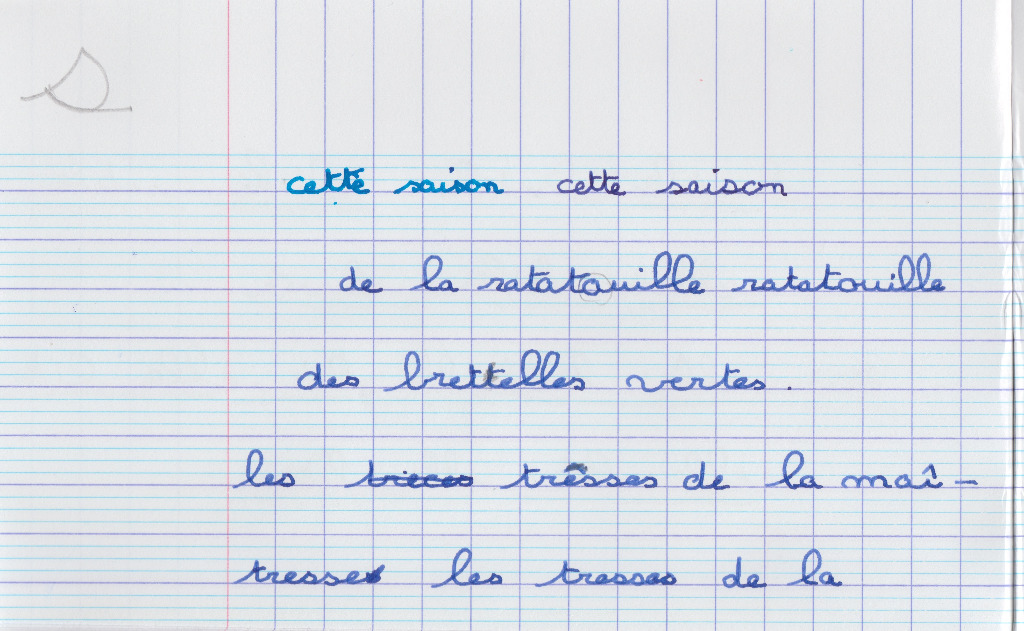 s
cette saison cette saison
de la ratatouille ratatouille
des brettelles vertes.
les trêsses de la maî-
tresse les tresses de la